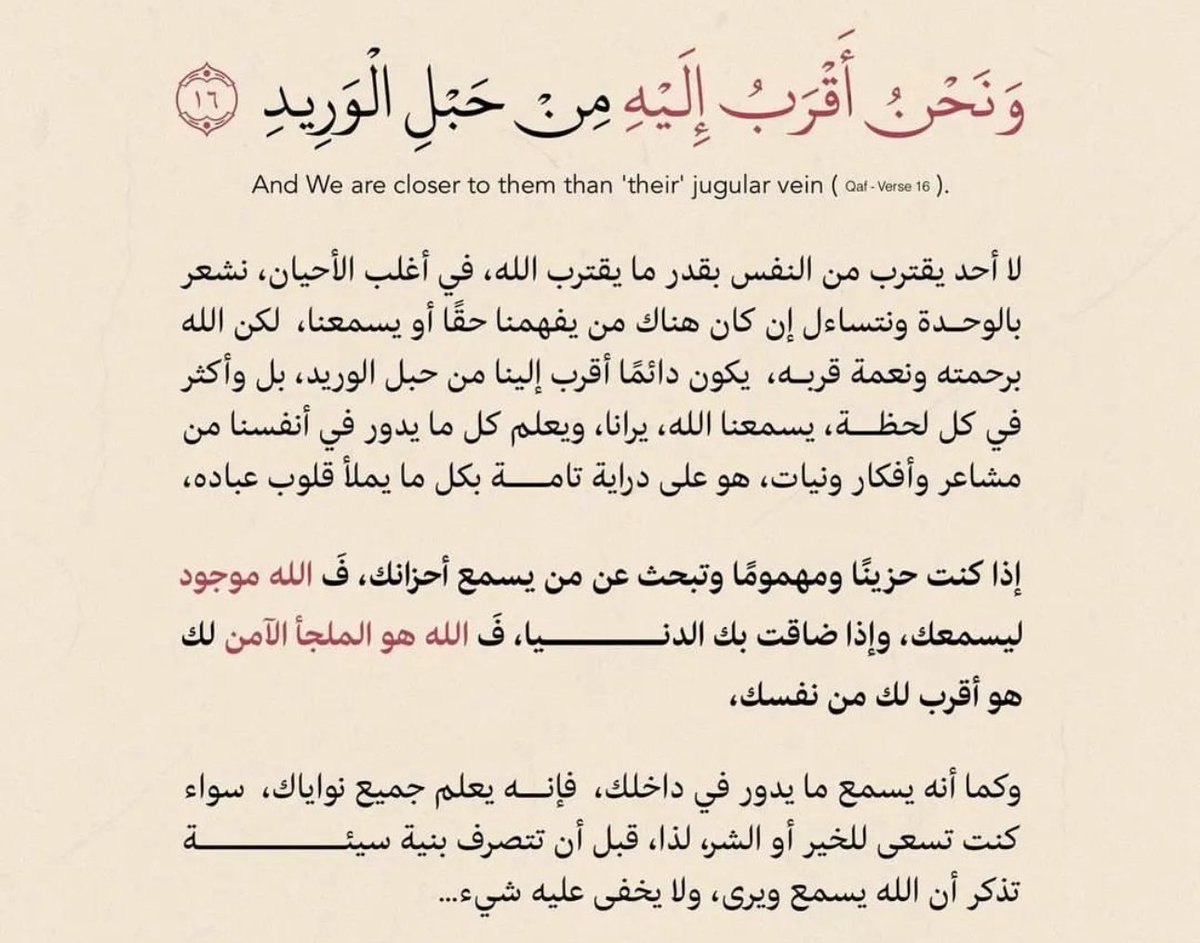 وَنَحْنُ أَقْرَبُ إِلَيْهِ مِنْ حَبْلِ الْوَرِيدِ ١٦
And We are closer to them than 'their' jugular vein ( Qaf - Verse 16 ).
لا أحد يقترب من النفس بقدر ما يقترب الله، في أغلب الأحيان، نشعر
بالوحـدة ونتساءل إن كان هناك من يفهمنا حقًا أو يسمعنا، لكن الله
برحمته ونعمة قربـه، يكون دائمًا أقرب إلينا من حبل الوريد، بل وأكثر
في كل لحظـــة، يسمعنا الله، يرانا، ويعلم كل ما يدور في أنفسنا من
مشاعر وأفكار ونيات، هو على دراية تامـــة بكل ما يملأ قلوب عباده،
إذا كنت حزينًا ومهمومًا وتبحث عن من يسمع أحزانك، فَ الله موجود
ليسمعك، وإذا ضاقت بك الدنـــــــــيا، فَ الله هو الملجأ الآمن لك
هو أقرب لك من نفسك،
وكما أنه يسمع ما يدور في داخلك، فإنـــه يعلم جميع نواياك، سواء
كنت تسعى للخير أو الشر، لذا، قبل أن تتصرف بنية سيئـــــــــــــة
تذكر أن الله يسمع ويرى، ولا يخفى عليه شيء...